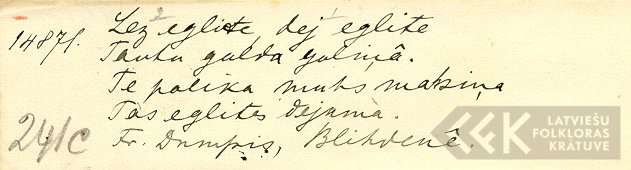 14871. Lez eglite, dej eglite
Tautu galda galiņâ.
Te palika muhs mahsiņa
Tas eglites dejama.
241c Fr. Dumpis, Blihdenê.
LATVIEŠU
FOLKLORAS
KRĀTUVE